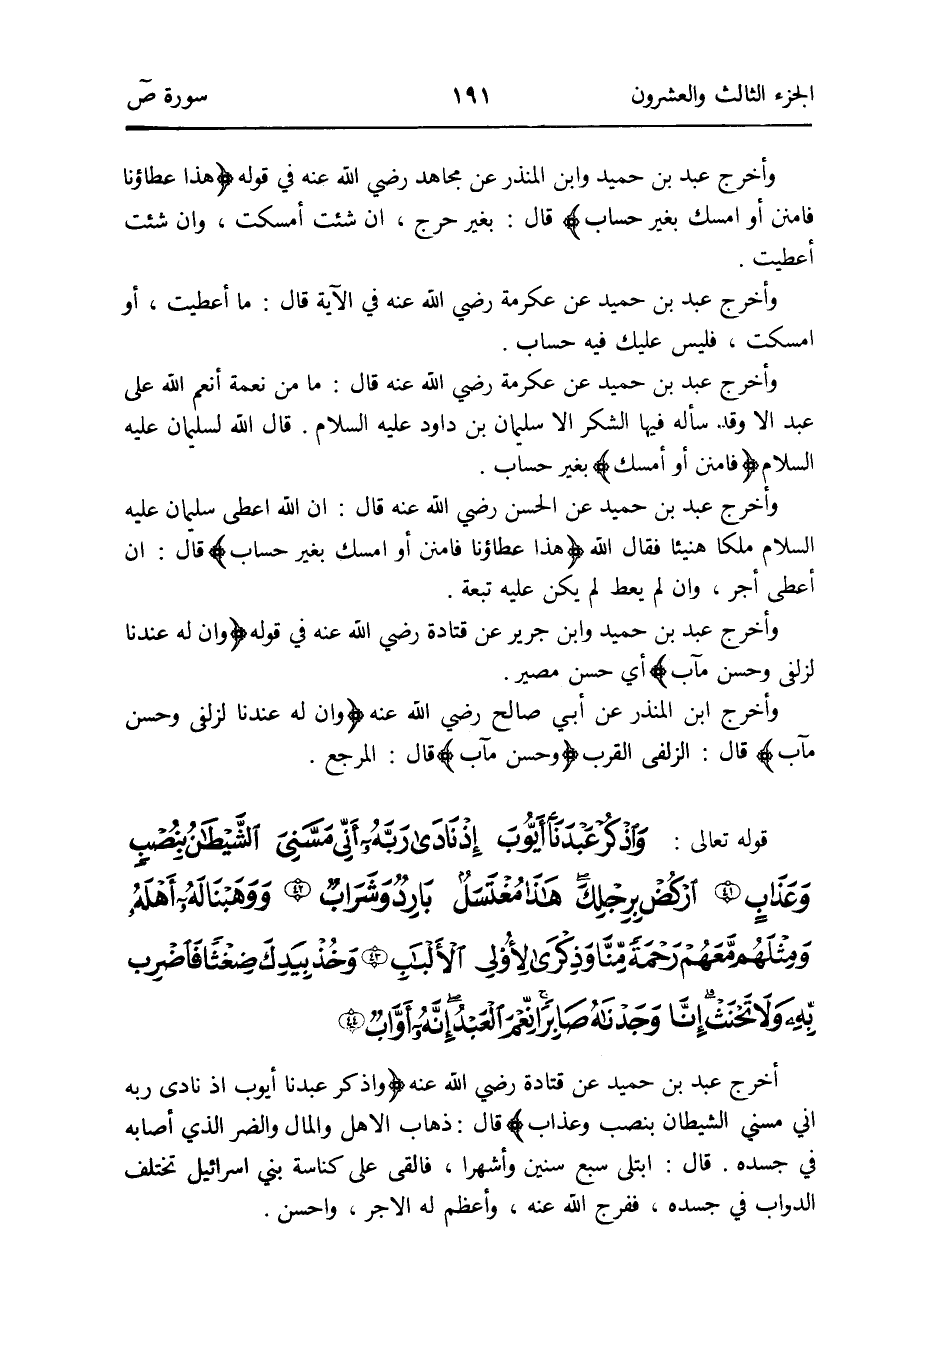 الجزء الثالث والعشرون ١٩١ سورة صٓ
وأخرج عبد بن حميد وابن المنذر عن مجاهد رضي الله عنه في قوله ﴿هذا عطاؤنا
فامنن أو امسك بغير حساب﴾ قال : بغير حرج ، ان شئت أمسكت ، وان شئت
أعطيت .
وأخرج عبد بن حميد عن عكرمة رضي الله عنه في الآية قال : ما أعطيت ، أو
امسكت ، فليس عليك فيه حساب .
وأخرج عبد بن حميد عن عكرمة رضي الله عنه قال : ما من نعمة أنعم الله على
عبد الا وقد سأله فيها الشكر الا سليمان بن داود عليه السلام . قال الله لسليمان عليه
السلام ﴿فامنن أو أمسك﴾ بغير حساب .
وأخرج عبد بن حميد عن الحسن رضي الله عنه قال : ان الله اعطى سليمان عليه
السلام ملكا هنيئا فقال الله ﴿هذا عطاؤنا فامنن أو امسك بغير حساب﴾ قال : ان
أعطى أجر ، وان لم يعط لم يكن عليه تبعة .
وأخرج عبد بن حميد وابن جرير عن قتادة رضي الله عنه في قوله ﴿وان له عندنا
لزلفى وحسن مآب﴾ أي حسن مصير .
وأخرج ابن المنذر عن أبـي صالح رضي الله عنه ﴿وان له عندنا لزلفى وحسن
مآب﴾ قال : الزلفى القرب ﴿وحسن مآب﴾ قال : المرجع .
قوله تعالى : وَٱذۡكُرۡ عَبۡدَنَآ أَيُّوبَ إِذۡ نَادَىٰ رَبَّهُۥٓ أَنِّي مَسَّنِيَ ٱلشَّيۡطَٰنُ بِنُصۡبٖ
وَعَذَابٍ ﴿٤١﴾ ٱرۡكُضۡ بِرِجۡلِكَۖ هَٰذَا مُغۡتَسَلُۢ بَارِدٞ وَشَرَابٞ ﴿٤٢﴾ وَوَهَبۡنَا لَهُۥٓ أَهۡلَهُۥ
وَمِثۡلَهُم مَّعَهُمۡ رَحۡمَةٗ مِّنَّا وَذِكۡرَىٰ لِأُوْلِي ٱلۡأَلۡبَٰبِ ﴿٤٣﴾ وَخُذۡ بِيَدِكَ ضِغۡثٗا فَٱضۡرِب
بِّهِۦ وَلَا تَحۡنَثۡۗ إِنَّا وَجَدۡنَٰهُ صَابِرٗاۚ نِّعۡمَ ٱلۡعَبۡدُ إِنَّهُۥٓ أَوَّابٞ ﴿٤٤﴾
أخرج عبد بن حميد عن قتادة رضي الله عنه ﴿واذكر عبدنا أيوب اذ نادى ربه
اني مسني الشيطان بنصب وعذاب﴾ قال : ذهاب الاهل والمال والضر الذي أصابه
في جسده . قال : ابتلى سبع سنين وأشهرا ، فالقى على كناسة بني اسرائيل تختلف
الدواب في جسده ، ففرج الله عنه ، وأعظم له الاجر ، واحسن .